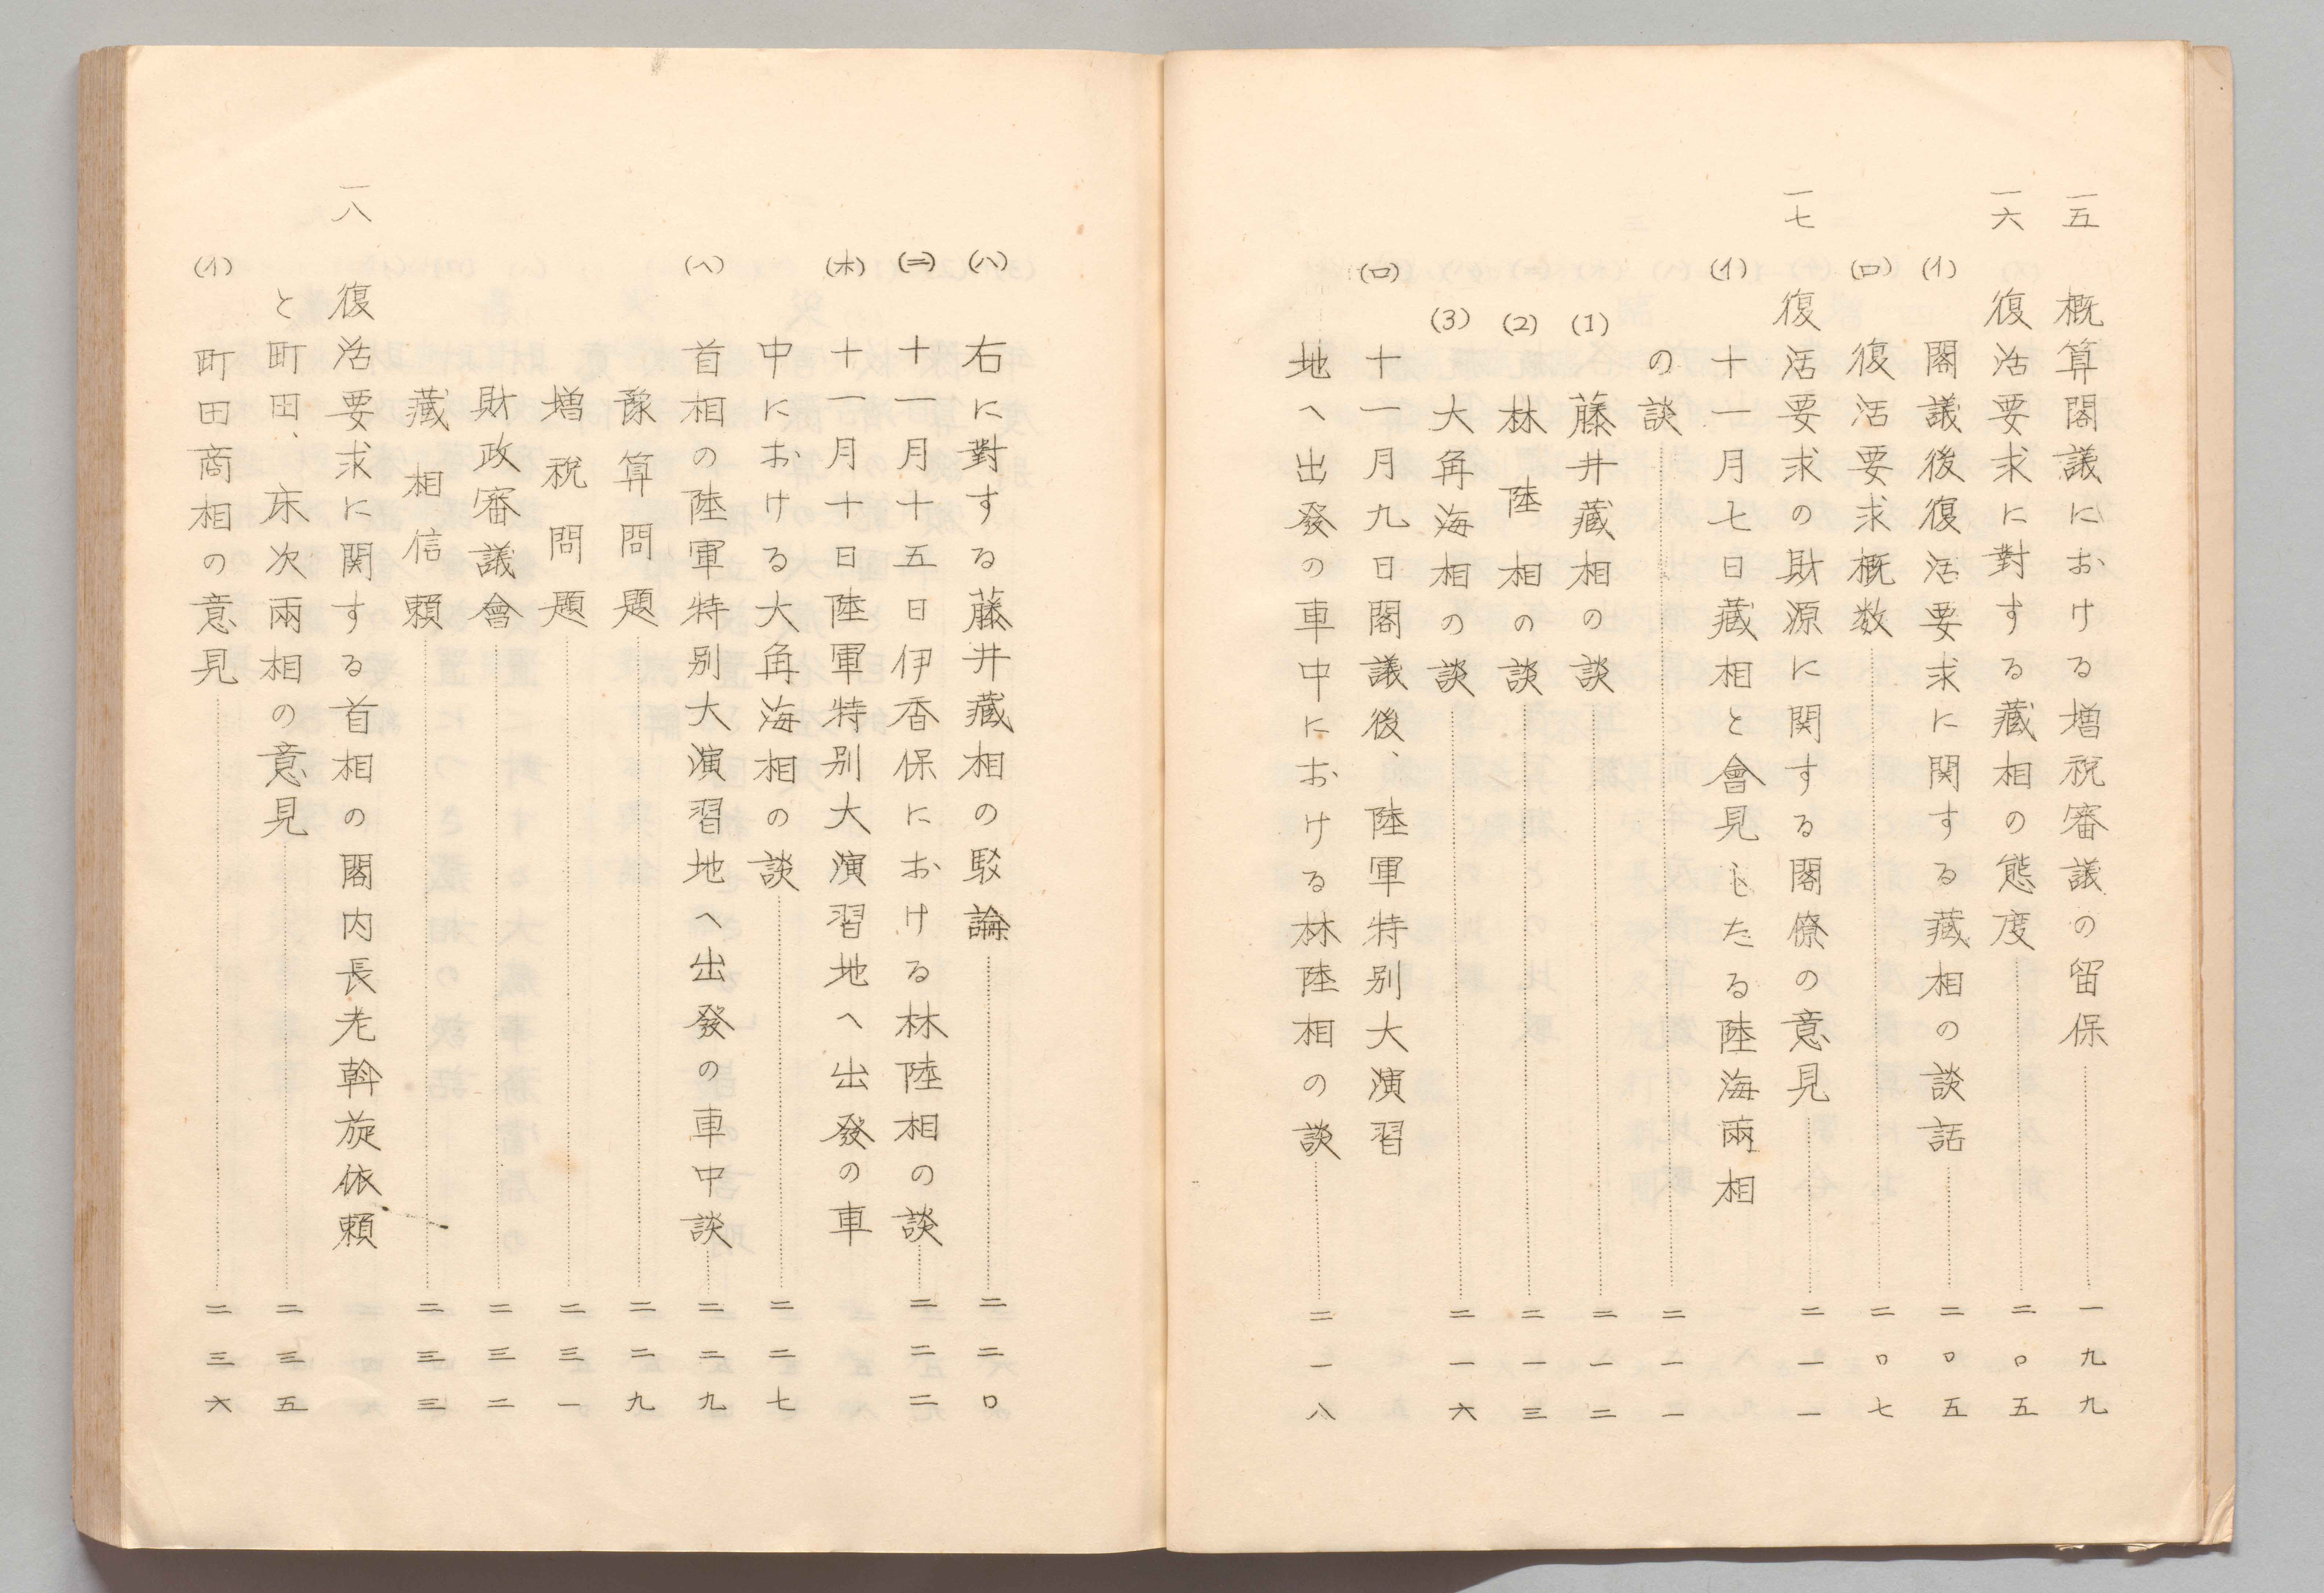 一五 概算閣議における増税審議の留保……一九九
一六 復活要求に對する藏相の態度……二〇五
(イ) 閣議後復活要求に関する藏相の談話……二〇五
(ロ) 復活要求概数……二〇七
一七 復活要求の財源に関する閣僚の意見……二一一
(イ) 十一月七日藏相と會見したる陸海兩相
の談……二一一
(1) 藤井藏相の談……二一二
(2) 林陸相の談……二一三
(3) 大角海相の談……二一六
(ロ) 十一月九日閣議後、陸軍特別大演習
地へ出發の車中における林陸相の談……二一八
(ハ) 右に對する藤井藏相の駁論……二二〇
(ニ) 十一月十五日伊香保における林陸相の談……二二二
(ホ) 十一月十日陸軍特別大演習地へ出發の車
中における大角海相の談……二二七
(ヘ) 首相の陸軍特別大演習地へ出發の車中談……二二九
豫算問題……二二九
増税問題……二三一
財政審議會……二三二
藏相信頼……二三三
一八 復活要求に関する首相の閣内長老斡旋依頼
と町田、床次兩相の意見……二三五
(イ) 町田商相の意見……二三六